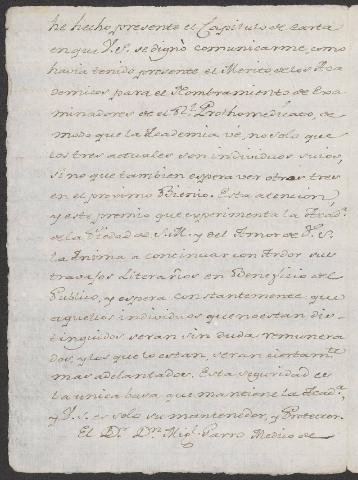 he hecho presente el Capitulo de Carta
en que V.S. se dignó comunicarme, como
havia tenido presente el Merito de los Aca
demicos para el Nombramiento de Exa
minadores de el Rl. Prothomedicato, de
modo que la Academia vé, no solo que
los tres actuales son individuos suios,
sino que tambien espera ver otros tres
en el proximo Bienio. Esta atencion,
y este premio que experimenta la Acada.
de la Piedad de S.M. y del Amor de V.S.
la Anima a continuar con Ardor sus
travajos Literarios en Beneficio del
Publico, y espera constantemente que
aquellos individuos que no estan dis-
tinguidos seran sin duda remunera
dos, y los que lo estan, seran ciertamte.
mas adelantados. Esta seguridad es
la unica basa que mantiene la Acada.
y V.S. es solo su mantenedor, y Protector.
El Dr. Dn. Migl. Parro Medico de